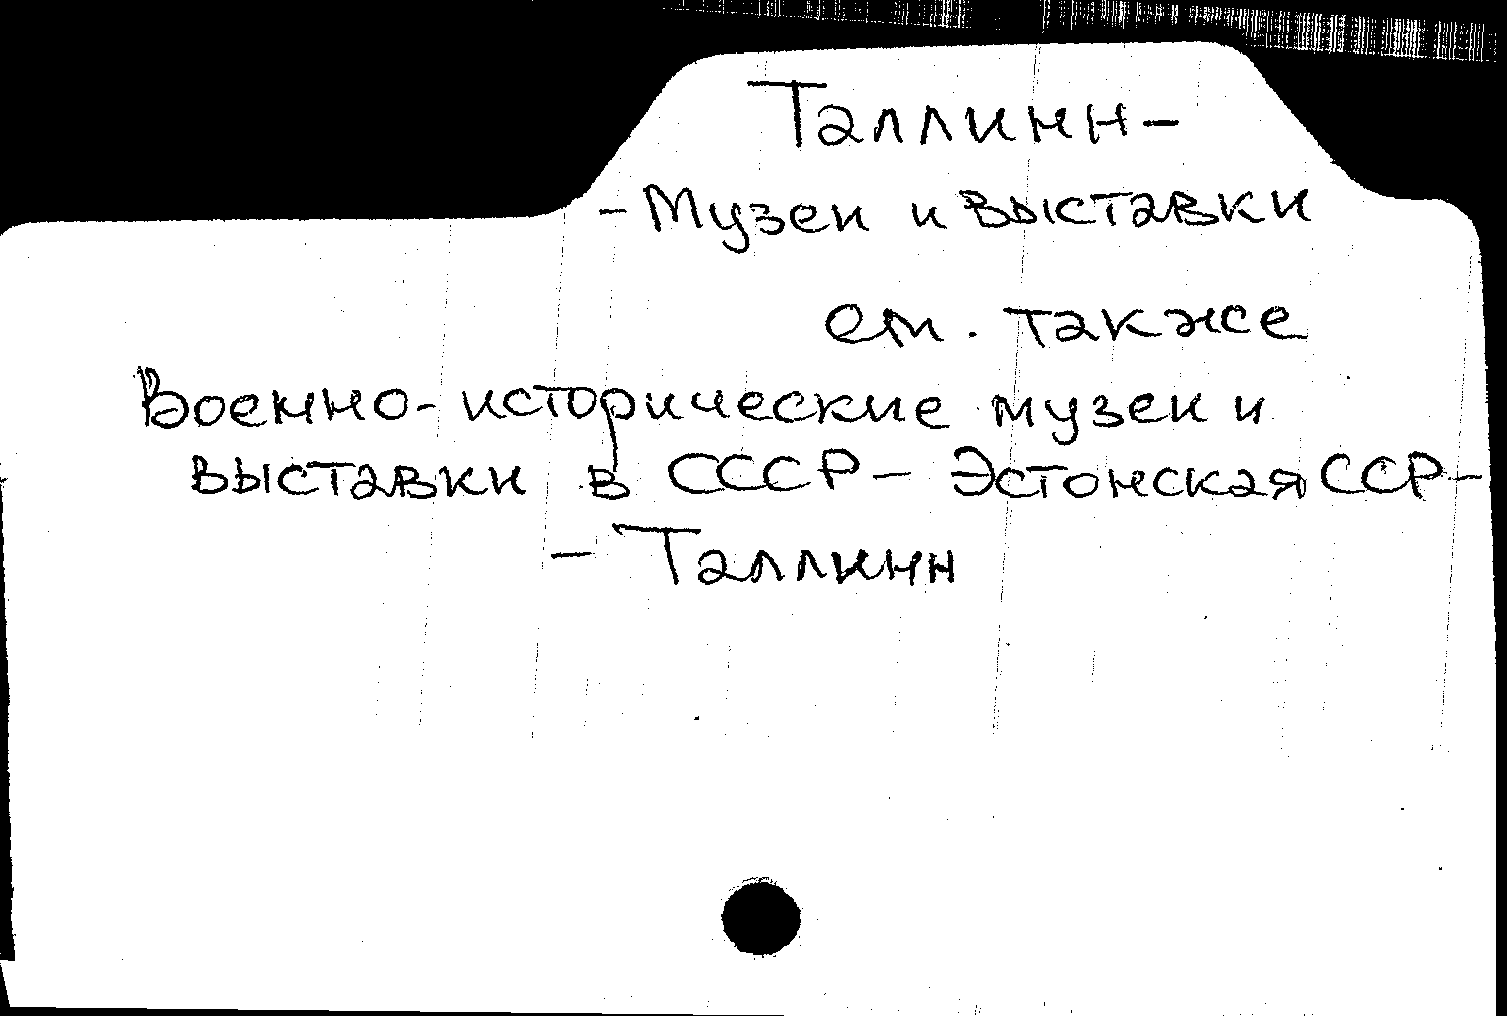 Таллинн-
- Музеи и выставки
см. также
Военно-исторические музеи и
выставки в СССР - Эстонская ССР -
- Таллинн